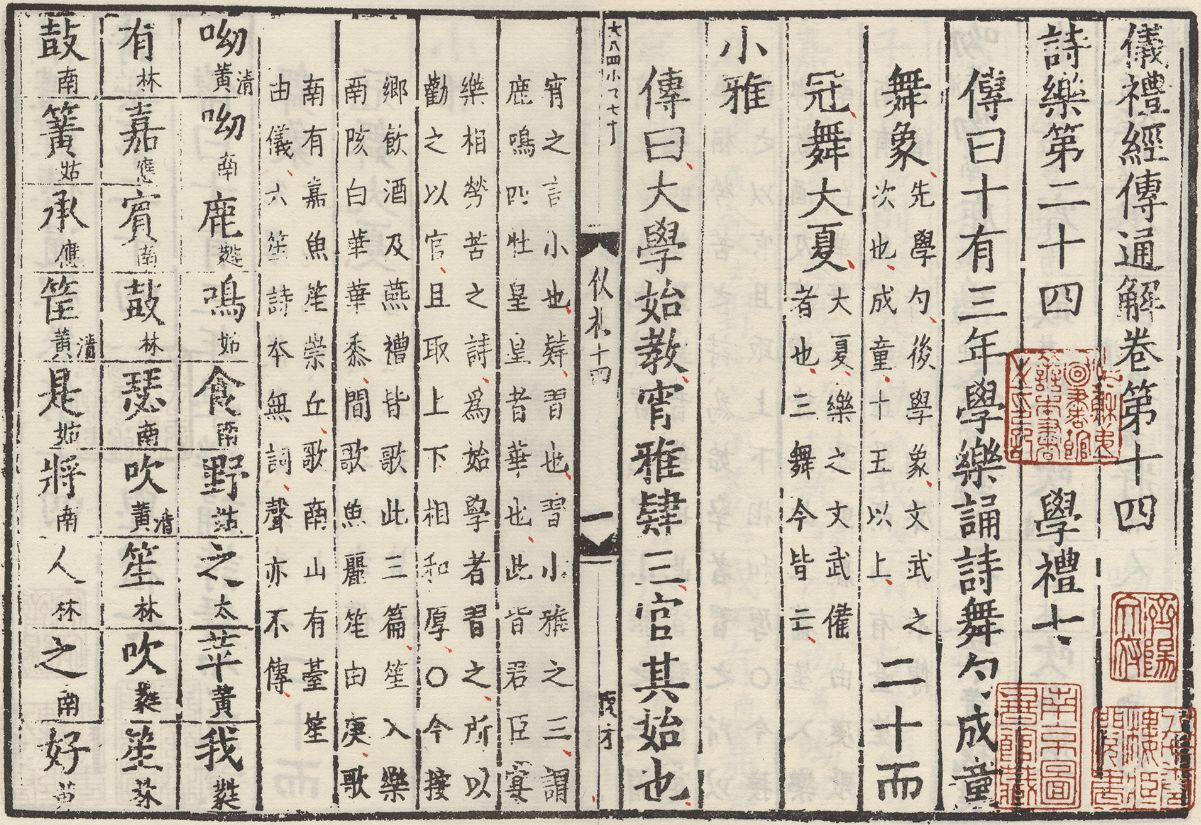 儀禮經傳通解卷第十四
詩樂第二十四 學禮七
傳曰十有三年學樂誦詩舞勺成童
舞象先學勺後學象文武之
次也成童十五以上
二十而
冠舞大夏大夏樂之文武備
者也三舞今皆亡
小雅
傳曰大學始教宵雅肄三官其始也
宵之言小也肄習也習小雅之三謂
鹿鳴四牡皇皇者華也此皆君臣宴
樂相勞苦之詩為始學者習之所以
勸之以官且取上下相和厚○今按
鄉飲酒及燕禮皆歌此三篇笙入樂
南陔白華華黍間歌魚麗笙由庚歌
南有嘉魚笙崇丘歌南山有臺笙
由儀六笙詩本無詞聲亦不傳
呦黃清呦南鹿蕤鳴姑食南野姑之太苹黃我蕤
有林嘉應賓南鼓林瑟南吹黃清笙林吹蕤笙林
鼓南簧姑承應筐黃清是姑將南人林之南好黃
儀禮十四
一
茂才